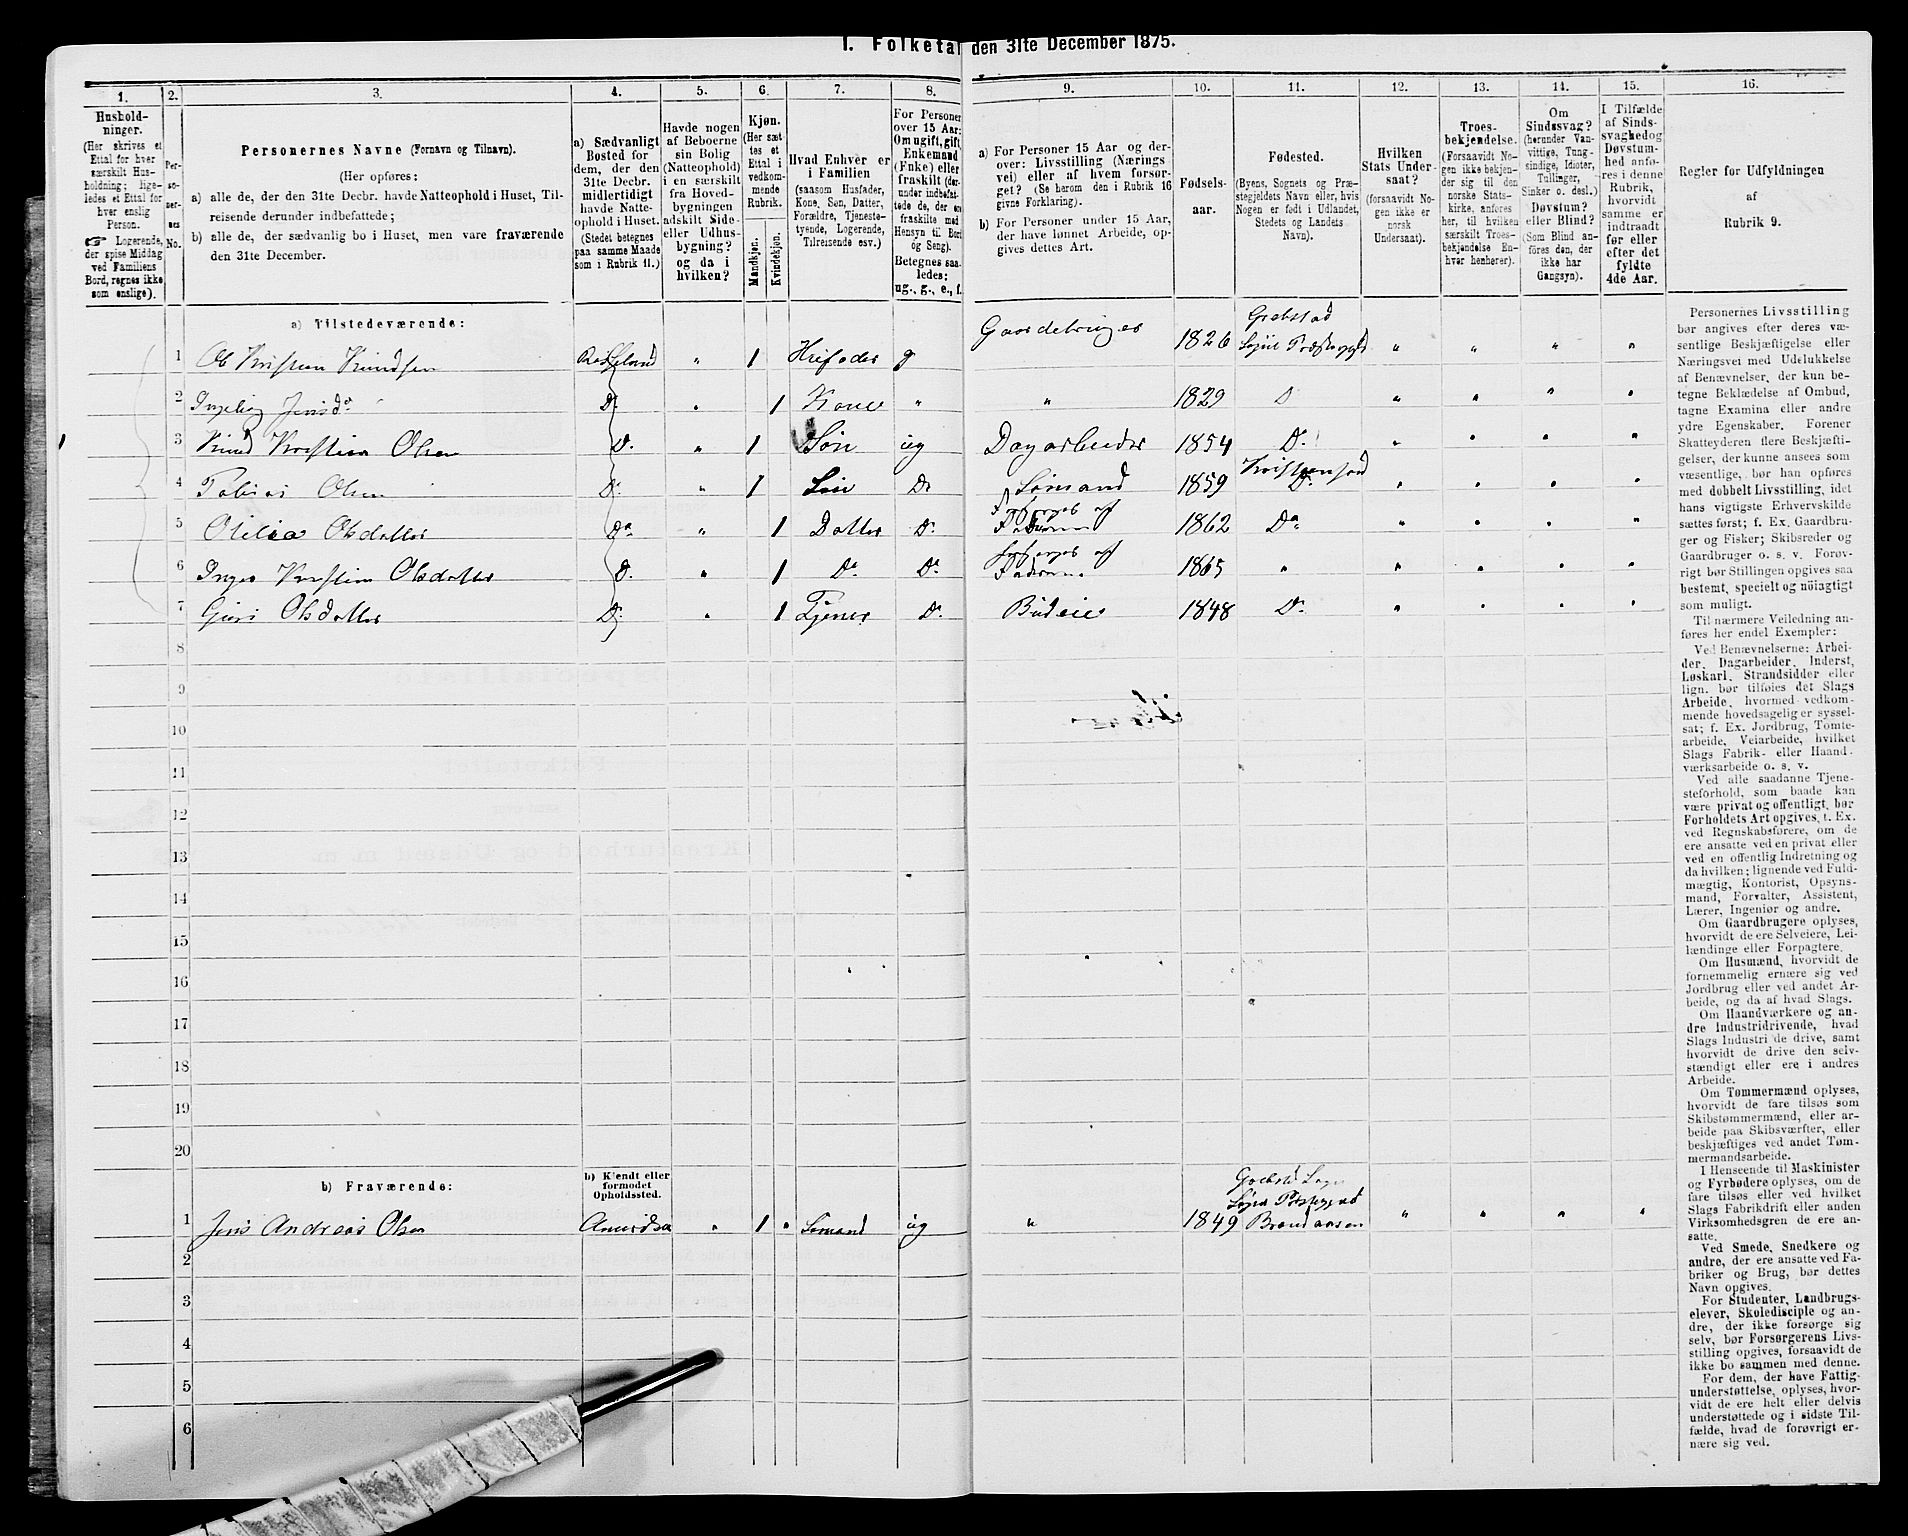 I. Folketal den 31te December 1875.
1. 2. 3. 4. 5. 6. 7. 8. 9. 10. 11. 12. 13. 14. 15. 16.
Hushold-
ninger.
(Her skrives et
Ettal for hver
særskilt Hus-
holdning; lige-
ledes et Ettal for
hver enslig
Person.
☞ Logerende,
der spise Middag
ved Familiens
Bord, regnes ikke
som enslige).
Per-
so-
ner-
nes
No.
Personernes Navne (Fornavn og Tilnavn).
(Her opføres:
a) alle de, der den 31te Decbr. havde Natteophold i Huset, Til-
reisende derunder indbefattede;
b) alle de, der sædvanlig bo i Huset, men vare fraværende
den 31te December.
a) Sædvanligt
Bosted for
dem, der den
31te Decbr.
midlertidigt
havde Natte-
ophold i Huset.
(Stedet betegnes
paa samme Maade
som i Rubrik 11.)
Havde nogen
af Beboerne
sin Bolig
(Natteophold)
i en særskilt
fra Hoved-
bygningen
adskilt Side-
eller Udhus-
bygning?
og da i
hvilken?
Kjøn.
(Her sæt-
tes et
Ettal i
vedkom-
mende
Rubrik.
Mandkjøn.
Kvindekjøn.
Hvad Enhver er
i Familien
(saasom Husfader,
Kone, Søn, Datter,
Forældre, Tjeneste-
tyende, Logerende,
Tilreisende osv.)
For Personer
over 15 Aar:
Om ugift, gift,
Enkemand
(Enke) eller
fraskilt (der-
under indbefat-
tede de, der ere
fraskilte med
Hensyn til Bord
og Seng).
Betegnes saa-
ledes:
ug., g., e., f.
a) For Personer 15 Aar og der-
over: Livsstilling (Nærings
vei) eller af hvem forsør-
get? (Se herom den i Rubrik 16
givne Forklaring).
b) For Personer under 15 Aar,
der have lønnet Arbeide, op-
gives dettes Art.
Fødsels-
aar.
Fødested.
(Byens, Sognets og Præ-
stegjeldets Navn eller, hvis
Nogen er født i Udlandet,
Stedets og Landets
Navn).
Hvilken
Stats Under-
saat?
(forsaavidt No-
gen ikke er
norsk
Undersaat).
Troes-
bekjendelse.
(Forsaavidt No-
gen ikke bekjen-
der sig til den
norske Stats-
kirke, anføres
her, til hvilken
særskilt Troes-
bekjendelse En-
hver henhører).
Om
Sindssvag?
(herunder Van-
vittige, Tung-
sindige, Idioter,
Tullinger,
Sinker o. desl.)
Døvstum?
eller Blind?
(Som Blind an-
føres den, der
ikke har
Gangsyn).
I Tilfælde
af Sinds-
svaghed og
Døvstum-
hed anfø-
res i denne
Rubrik,
hvorvidt
samme er
indtraadt
før eller
efter det
fyldte
4de Aar.
Regler for Udfyldningen
af
Rubrik 9.
a) Tilstedeværende:
1 Ol Kristian Knudsen 1 Husfader g Gaardbruger 1826 Grebstad Søgne
2 Ingeborg Jensdr D. 1 Kone 1829 D
3 Knud Kristian Olsen D. 1 Søn ug Dagarbeider 1854 D.
4 Tobias Olsen D. 1 Søn D Sømand 1859 Kristiansand D.
5 Otilia Olsdatter Do 1 Datter D. Forsørges af Faderen 1862 Do
6 Inger Kristine Olsdatter D. 1 D. D. Forsørges af Faderen 1865
7 Guri Olsdatter D. 1 Tjener D. Budeie 1848 D.
8
9
10
11
12
13
14
15
16
17
18
19
20
b) Fraværende:
b) Kjendt eller
formodet
Opholdssted.
1 Jens Andreas Olsen 1 Sømand ug 1849
2
3
4
5
6
Personernes Livsstilling
bør angives efter deres væ-
sentlige Beskjæftigelse eller
Næringsvei med Udelukkelse
af Benævnelser, der kun be-
tegne Beklædelse af Ombud,
tagne Examina eller andre
ydre Egenskaber. Forener
Skatteyderen flere Beskjæfti-
gelser, der kunne ansees som
væsentlige, bør han opføres
med dobbelt Livsstilling, idet
hans vigtigste Erhvervskilde
sættes først; f. Ex. Gaardbru-
ger og Fisker; Skibsreder og
Gaardbruger o. s. v. Forøv-
rigt bør Stillingen opgives saa
bestemt, specielt og nøiagtigt
som muligt.
Til nærmere Veiledning an-
føres her endel Exempler:
Ved Benævnelserne: Arbei-
der, Dagarbeider, Inderst,
Løskarl, Strandsidder eller
lign. bør tilføies det Slags
Arbeide, hvormed vedkom-
mende hovedsagelig er syssel-
sat; f. Ex. Jordbrug, Tomte-
arbeide, Veiarbeide, hvilket
Slags Fabrik- eller Haand-
værksarbeide o. s. v.
Ved alle saadanne Tjene-
steforhold, som baade kan
være privat og offentligt, bør
Forholdets Art opgives, t. Ex.
ved Regnskabsførere, om de
ere ansatte ved en privat eller
ved en offentlig Indretning og
da hvilken; lignende ved Fuld-
mægtig, Kontorist, Opsyns-
mand, Forvalter, Assistent,
Lærer, Ingeniør og andre.
Om Gaardbrugere oplyses,
hvorvidt de ere Selveiere, Lei-
lændinge eller Forpagtere.
Om Husmænd, hvorvidt de
fornemmelig ernære sig ved
Jordbrug eller ved andet Ar-
beide, og da af hvad Slags.
Om Haandværkere og an-
dre Industridrivende, hvad
Slags Industri de drive, samt
hvorvidt de drive den selv-
stændigt eller ere i andres
Arbeide.
Om Tømmermænd oplyses,
hvorvidt de fare tilsøs som
Skibstømmermænd, eller ar-
beide paa Skibsværfter, eller
beskjæftiges ved andet Tøm-
mermandsarbeide.
I Henseende til Maskinister
og Fyrbødere oplyses, om de
fare tilsøs eller ved hvilket
Slags Fabrikdrift eller anden
Virksomhedsgren de ere an-
satte.
Ved Smede, Snedkere og
andre, der ere ansatte ved Fa-
briker og Brug, bør dettes
Navn opgives.
For Studenter, Landbrugs-
elever, Skoledisciple og an-
dre, der ikke forsørge sig
selv, bør Forsørgerens Livs-
stilling opgives, forsaavidt de
ikke bo sammen med denne.
For dem, der have Fattig-
understøttelse, oplyses, hvor-
vidt de ere helt eller delvis
understøttede og i sidste Til-
fælde, hvad de forøvrigt er-
nære sig ved.